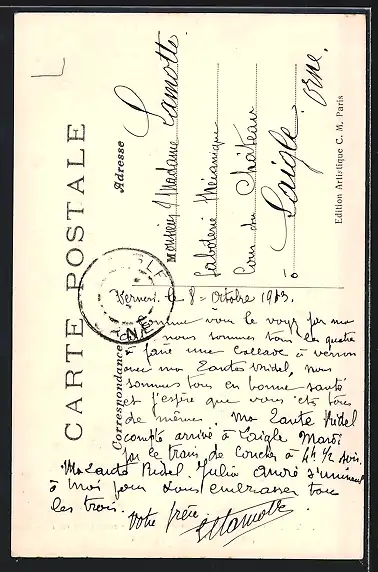 CARTE POSTALE
Correspondance
Adresse
Monsieur & Madame Lamotte
Saboterie Mécanique
Cour du Château
à Laigle
Orne.
Edition Artistique C. M. Paris
Verneuil. le 8 - Octobre 1913.
Comme vous le voyez par ma
nous sommes tous les quatre
à faire une ballade à verneuil
avec ma Tante Videl, nous
sommes tous en bonne santé
et j'espère que vous êtes tous
de même. Ma Tante Videl
compte arrivé à Laigle Mardi
par le train de Couches à 4h 1/2 soir.
Ma Tante Videl. Julia André s'unissent
à moi pour vous embrasser tous
les trois.
Votre frère
Lamotte